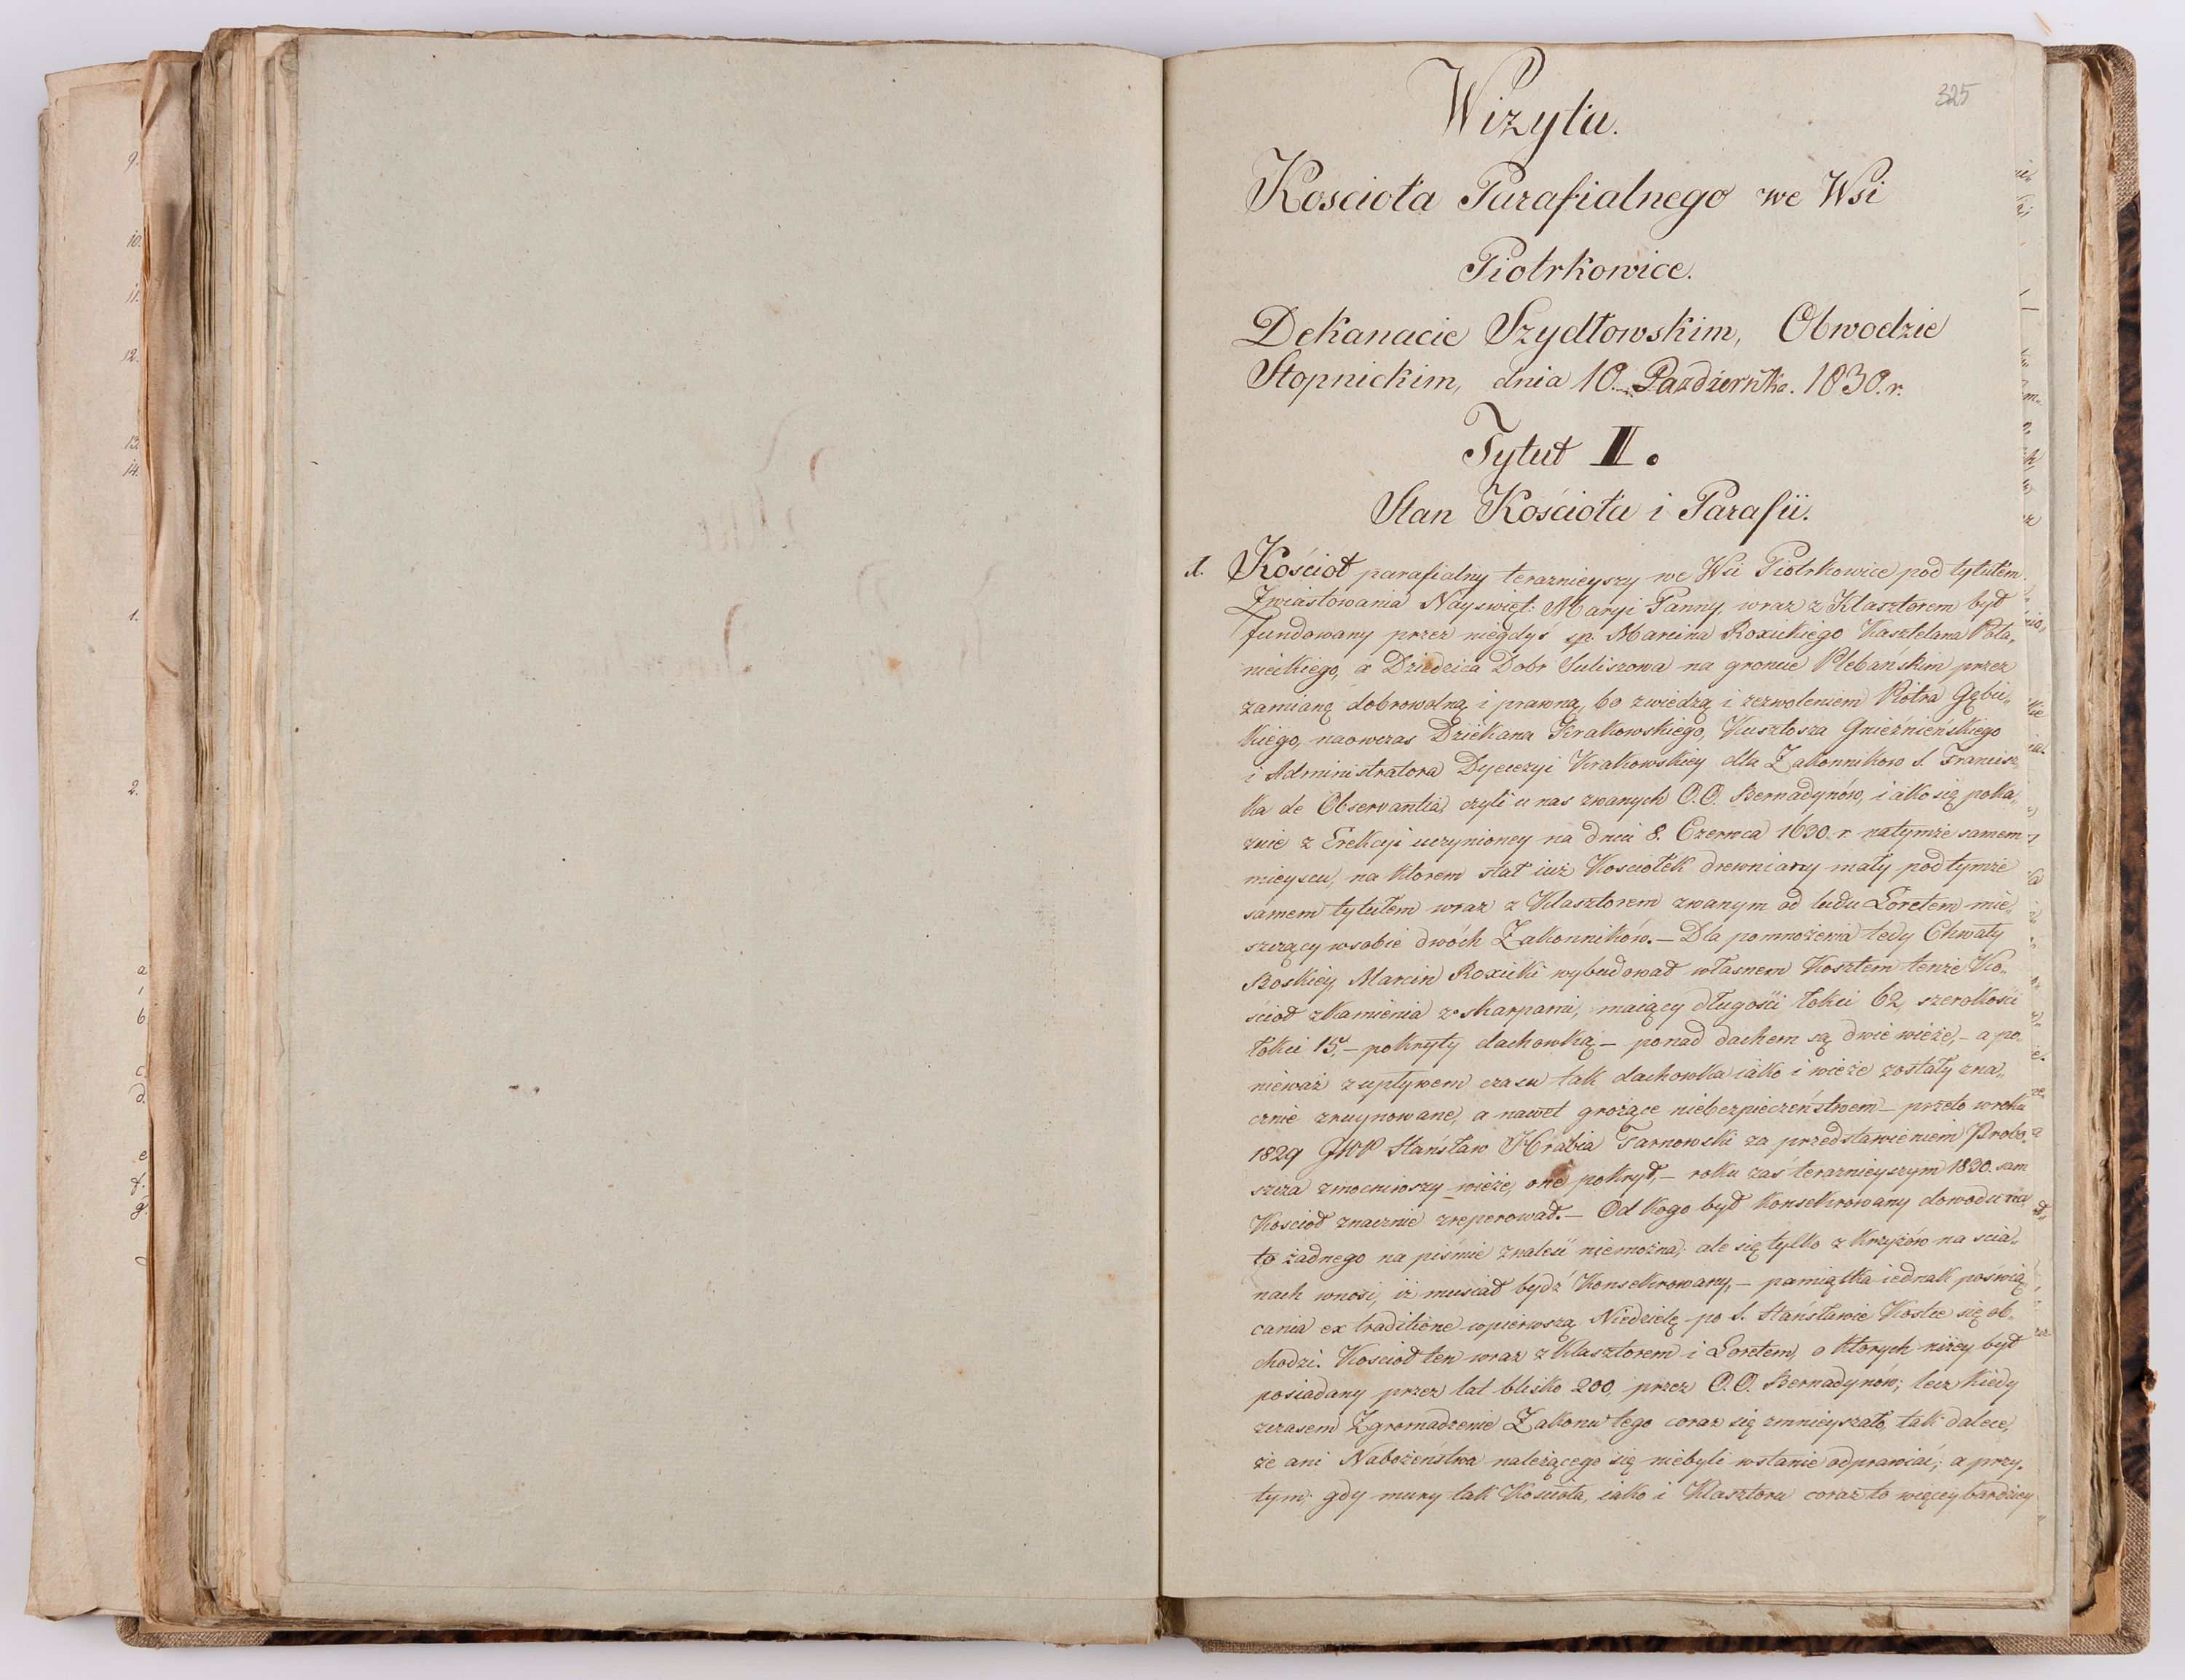 9.
10.
11.
12.
13.
14.
1.
2.
a
b
c
d.
e
f.
g.
325
Wizyta.
Koscioła Parafialnego we Wsi
Piotrkowice.
Dekanacie Szydłowskim, Obwodzie
Stopnickim, dnia 10. Pazdziernika. 1830. r.
Tytuł II.
Stan Kościoła i Parafii.
1. Kościoł parafialny teraznieyszy we Wsi Piotrkowice pod tytułem
Zwiastowania Nayswięt: Maryi Panny, wraz z Klasztorem był
fundowany przez niegdyś sp. Marcina Roxickiego Kasztelana Poła„
nieckiego, a Dziedzica Dobr Suliszowa na groncie Plebańskim przez
zamianę dobrowolną i prawną, bo zwiedzą i zezwoleniem Piotra Gębic„
kiego, naowczas Dziekana Krakowskiego, Kusztosza Gnieźnieńskiego
i Administratora Dyecezyi Krakowskiey dla Zakonnikow S. Francisz„
ka de Observantia, czyli u nas zwanych O.O. Bernadynów, iako się poka„
zuie z Erekcyi uczynioney na dniu 8. Czerwca 1630 r. natymże samem
mieyscu, na ktorem stał iuż Kosciołek drewniany mały podtymże
samem tytułem wraz z Klasztorem zwanym od ludu Loretem mie„
szczący wsobie dwóch Zakonników. – Dla pomnożenia tedy Chwały
Boskiey, Marcin Roxicki wybudował własnem Kosztem tenże Ko„
ścioł zkamienia z skarpami, maiący długości łokci 62, szerokości
łokci 15, – pokryty dachowką – ponad dachem są dwie wieże, – a po„
nieważ z upływem czasu tak dachowka iako i wieże zostały zna„
cznie zruynowane, a nawet grożące niebezpieczeństwem – przeto w roku
1829 JWP Stanisław Hrabia Tarnowski za przedstawieniem Probo„
szcza zmocniwszy wieże, one pokrył, – roku zaś teraznieyszym 1830. sam
Koscioł znacznie zreperował. – Od kogo był Konsekrowany dowodu na
to żadnego na piśmie znaleść niemożna, ale się tylko z Krzyżów na scia„
nach wnosi, iż musiał bydź Konsekrowany, – pamiątka iednak poświę„
cania ex traditione wpierwszą Niedzielę po S. Stanisławie Kostce się ob„
chodzi. Koscioł ten wraz z Klasztorem i Loretem, o ktorych niżey był
posiadany przez lat blisko 200, przez O.O. Bernadynów; lecz kiedy
zczasem Zgromadzenie Zakonu tego coraz się zmnieyszało, tak dalece,
że ani Nabożeństwa należącego się niebyli wstanie odprawiać; a przy„
tym; gdy mury tak Kościoła, iako i Klasztoru coraz to więcey bardziey